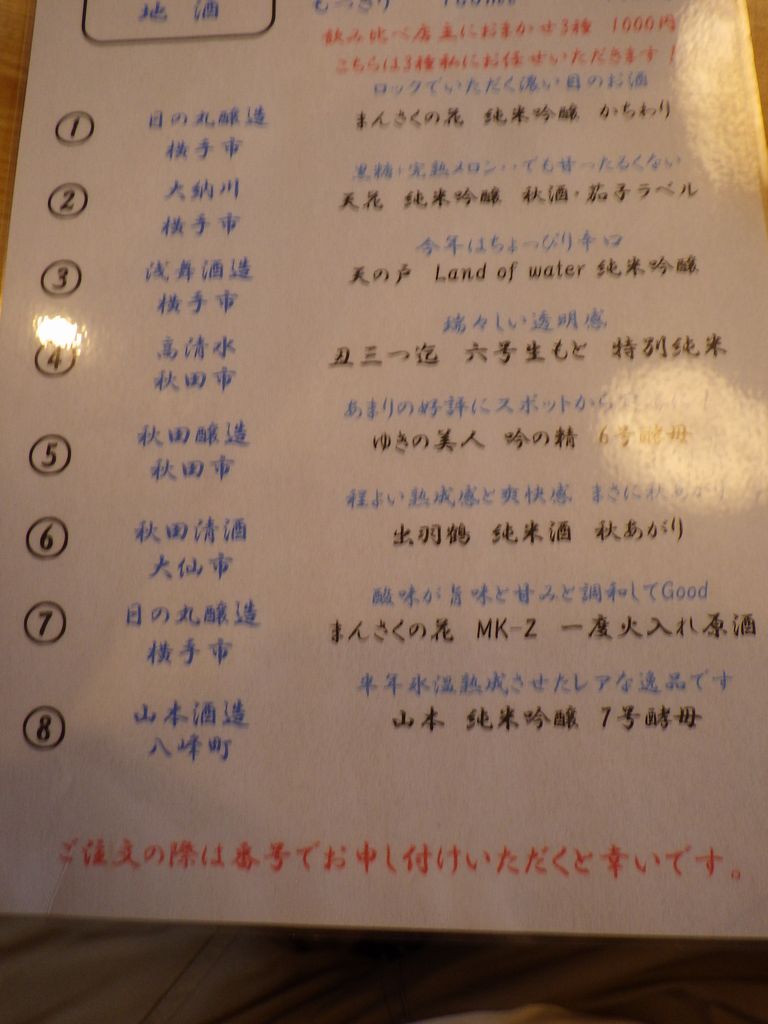 地酒
もっきり
飲み比べ店主におまかせ3種 1000円
こちらは3種私にお任せいただきます!
ロックでいただく濃い目のお酒
① 日の丸醸造 まんさくの花 純米吟醸 かちわり
横手市
黒糖・完熟メロン・・でも甘ったるくない
② 大納川 天花 純米吟醸 秋酒・茄子ラベル
横手市
今年はちょっぴり辛口
③ 浅舞酒造 天の戸 Land of water 純米吟醸
横手市
瑞々しい透明感
④ 高清水 丑三つ迄 六号生もと 特別純米
秋田市
あまりの好評にスポットから!
⑤ 秋田醸造 ゆきの美人 吟の精 6号酵母
秋田市
程よい熟成感と爽快感 まさに秋あがり
⑥ 秋田清酒 出羽鶴 純米酒 秋あがり
大仙市
酸味が旨味と甘みと調和してGood
⑦ 日の丸醸造 まんさくの花 MK-2 一度火入れ原酒
横手市
半年氷温熟成させたレアな逸品です
⑧ 山本酒造 山本 純米吟醸 7号酵母
八峰町
ご注文の際は番号でお申し付けいただくと幸いです。